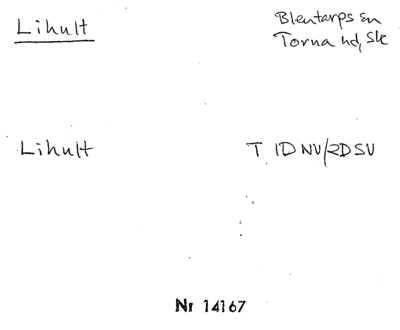 Lihult
Blentarps sn
Torna hd, Sk
Lihult
T 1D NV/2D SV
Nr 14167